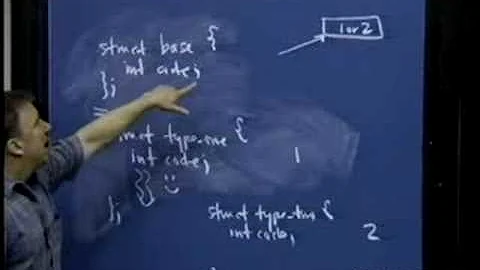 struct base {
int code;
};
1 or 2
struct type-one {
int code;
}} 
};
1
struct type-two {
int code;
2